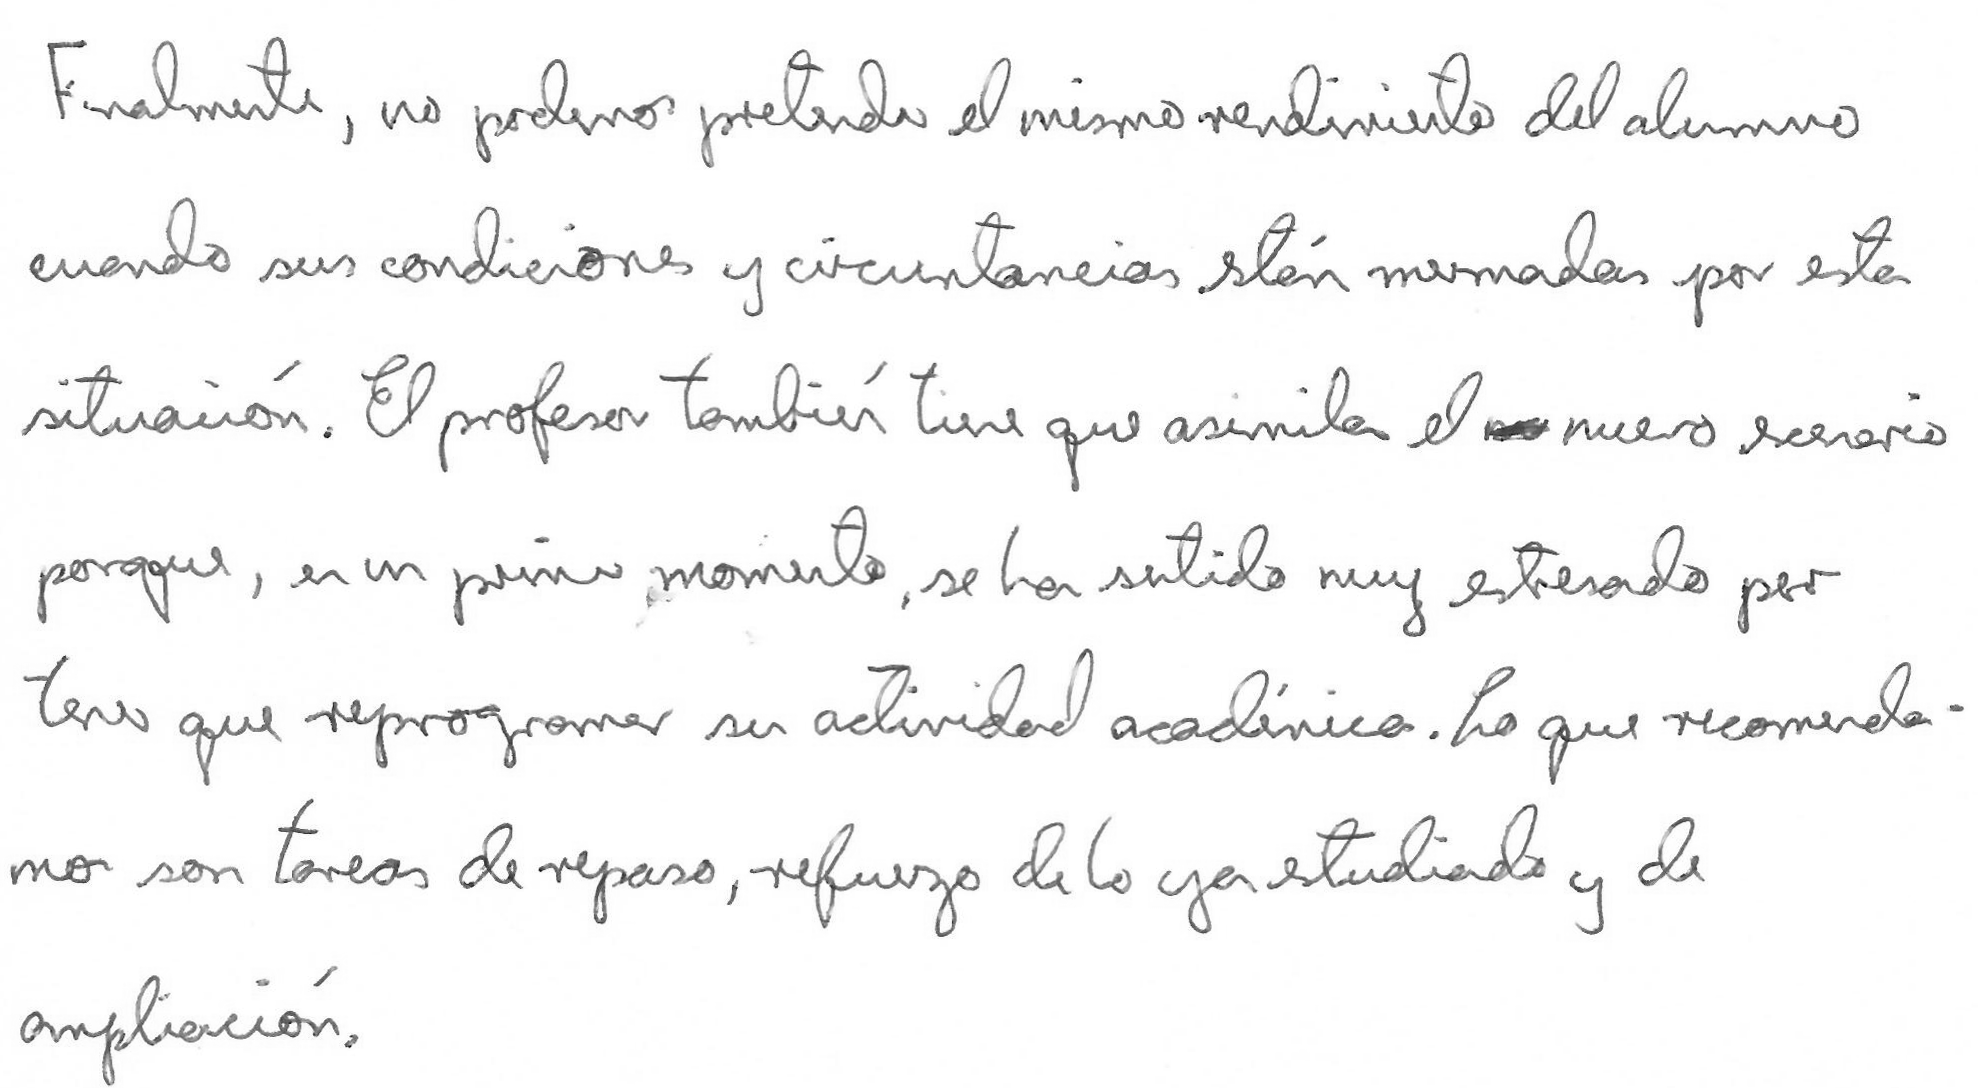 Finalmente, no podemos pretender el mismo rendimiento del alumno
cuando sus condiciones y circuntancias están mermadas por esta
situación. El profesor también tiene que asimilar el nuevo escenario
porque, en un primer momento, se ha sentido muy estresado por
tener que reprogramar su actividad académica. Lo que recomenda-
mos son tareas de repaso, refuerzo de lo ya estudiado y de
ampliación.